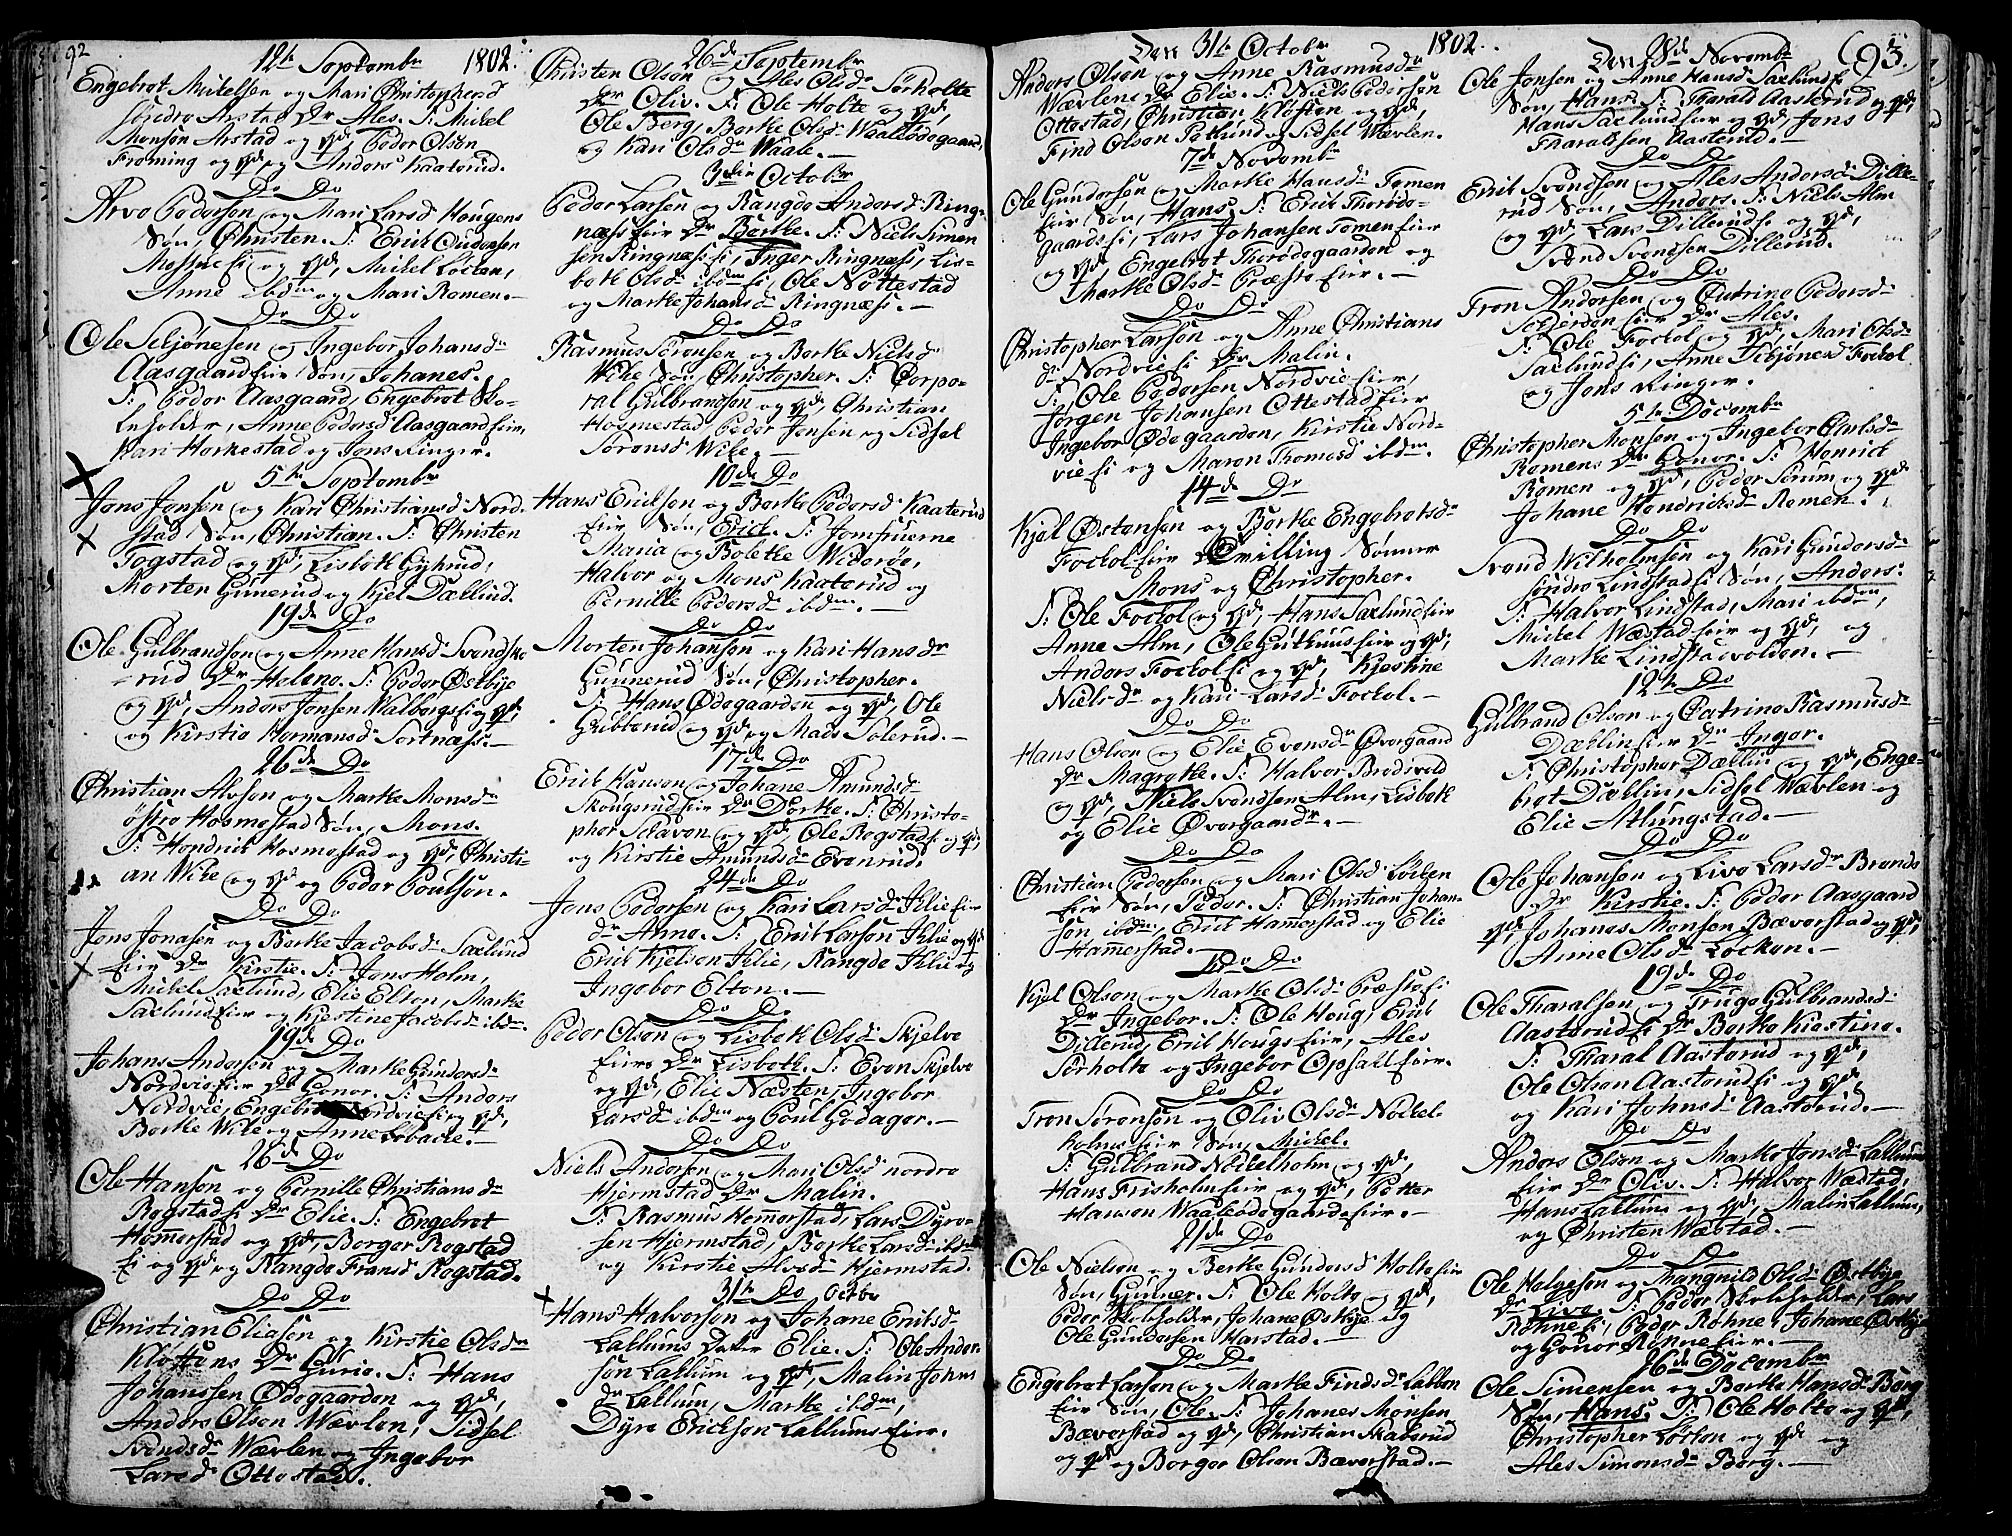 92
12te Septembr 1802.
Engebret Mickelsen og Mari Christophersd
søndre Arstad Dr Ales. F: Mickel
Monsen Arstad og qd, Peder Olsen
Froming og qd, og Anders Kaaterud.
Do Do
Arve Pedersen og Mari Larsd Hougens
Søn, Christen. F: Erick
og qd, Mickel Løcken,
Anne ibdm og Mari Romen.-
Do Do
Ole Schjønesen og Ingebor Johansdr
Aasgaardeier Søn, Johanes.
F: Peder Aasgaard, Engebret Sko-
leholder, Anne Pedersd Aasgaardeier,
Kari Horkestad og Jens Ringer.
5te Septembr
Jens Jensen og Kari Christiansd Nord-
stad Søn, Christian. F: Christen
Togstad og qd, Lisbeth Gyhrud,
Morten Gunerud og Kjel Dællind.
19de Do
Ole Gulbrandsen og Anne Hansd Svendske-
rud Dr Helene. F: Peder Østbye
og qd, Anders Jensen Valborgs og qd,
og Kirstie Hermansd Sortnæss.-
26de Do
Christian Alvsen og Marthe Monsdr
østre Hosmestad Søn, Mons.
F: Hendrick Hosmestad og qd, Christi-
an Wike og qd og Peder Poulsen.
Do Do
Jens Jonasen og Berthe Jacobsd Saxlund
eier Dr Kirstie. F: Jens Holm,
Mickel Saxlund, Elie Elton, Marthe
Saxlundeier og Kjestine Jacobsd ibdm.
19de Do
Johans Andersen og Marthe Gundersdr
Nordvieeier Dr Gonor. F: Anders
Nordvie, Engebret Nordvie og qd,
Berthe Wike og Anne
26de Do
Ole Hansen og Pernille Christiansdr
Rogstad Dr Elie. F: Engebret
Hommerstad og qd, Borger Rogstad
og qd og Rangde Fransd Rogstad.
Do Do
Christian Eliasen og Kirstie Olsdr
Kløftens Dr Gurie. F: Hans
Johanssen Ødegaarden og qd,
Anders Olsen Wævlen, Sidsel
Svendsdr Wævlen og Ingebor
Larsd Ottestad.
26de Septembr
Christen Olsen og Ales Olsdr Sørholte
Dr Oliv. F: Ole Holte og qd,
Ole Berg, Berthe Olsd Waaleødegaard,
og Kari Olsdr Waale.-
3die Octobr
Peder Larsen og Rangde Andersd Ring-
næseier Dr Berthe. F: Niels Simen
sen Ringnæs, Inger Ringnæs, Lis-
beth Olsd ibdm, Ole Nøttestad
og Marthe Johansd Ringnæs.-
Do Do
Rasmus Sørensen og Berthe Nielsd
Wike Søn, Christopher. F: Corpo-
ral Gulbransen og qd, Christian
Hosmestad, Peder Jensen og Sidsel
Sørensd Wike.-
10de Do
Hans Ericksen og Berthe Pedersd Kaaterud
eier Søn, Erick. F: Jomfruerne
Maria og Bolethe Widerøe,
Halvor og Mons Kaaterud og
Pernille Pedersd ibdm.-
Do Do
Morten Johansen og Kari Hansdr
Gunnerud Søn, Christopher.
F: Hans Ødegaarden og qd, Ole
Gubberud og qd, og Mads Solerud.-
17de Do
Erick Hansen og Johane Amundsd
Skougsrudeier Dr Dorthe. F: Christo-
pher Schavon og qd, Ole Rogstad og qd,
og Kirstie Amundsd Evenrud.
24de Do
Jens Pedersen og Kari Larsd Iklieeier
Dr Anne. F: Erick Larsen Iklie og qd
Erick Kjelsen Iklie, Rangde Iklie og
Ingebor Elton.-
Do Do
Peder Olsen og Lisbeth Olsd Skjelve
eiers Dr Lisbeth. F: Even Skjelve
og qd, Elie Næsten, Ingebor
Larsd ibdm og Poul Godager.-
Do Do
Niels Andersen og Mari Olsd nordre
Hjermstad Dr Malin.
F: Rasmus Hommerstad, Lars Dyre-
sen Hjermstad, Berthe Larsd ibdm
og Kirstie Alvsd Hjermstad.
31te Do Octbr
Hans Halvorsen og Johane Ericksd
Lallums Datter Elie. F: Ole Ander-
sen Lallum og qd, Malin Johns
dr Lallum, Marthe ibdm,
Dyre Ericksen Lallumseier.
Den 31te Octobr 1802.
Anders Olsen og Anne Rasmusdr
Wævlens Dr Elie. F: Niels Pedersen
Ottestad, Christian Kløften og qd,
Find Olsen Potlund og Sidsel Wævlen.
7de Novembr
Ole Gundersen og Marthe Hansd Tomen
eier Søn, Hans. F: Erick Thorøde-
gaards, Lars Johansen Tomeneier
og qd, Engebret Thorødegaarden og
Marthe Olsd Præsteeier.-
Do Do
Christopher Larsen og Anne Christians
dr Nordvie Dr Malin.
F: Ole Pedersen Nordvieeier,
Jørgen Johansen Ottestadeier
Ingebor Ødegaarden, Kirstie Nord-
vie og Maren Thomesd ibdm.
14de Do
Kjel Østensen og Berthe Engebretsdr
Fockoleier Tvilling Sønner
Mons og Christopher.
F: Ole Fockol og qd, Hans Saxlundeier
Anne Alm, Ole Gutkuuseier og qd,
Anders Fockol og qd, Kjestine
Nielsdr og Kari Larsd Fockol.-
Do Do
Hans Olsen og Elie Evensdr Øvergaard
Dr Magrethe. F: Halvor Bredsvold
og qd, Niels Svendsen Alm, Lisbeth
og Elie Øvergaardr.-
Do Do
Christian Pedersen og Mari Olsd Løcken
eier Søn, Peder. F: Christian Johan-
sen ibdm, Erick Hammerstad og Elie
Hammerstad.-
Do Do
Kjel Olsen og Marthe Olsdr Præste
Dr Ingebor. F: Ole Houg, Erick
Dillerud, Erick Hougseier, Ales
Sørholte og Ingebor Opsaleier.-
Do Do
Tron Sørensen og Oliv Olsdr Nockel-
holmseier Søn, Mickel.
F: Gulbrand Nockelholm og qd,
Hans Frisholmeier og qd, Petter
Hansen Waaleødegaardeier.-
21de Do
Ole Nielsen og Berthe Gundersd Holteeier
Søn, Gunner. F: Ole Holte og qd,
Peder Skoleholder, Johane Østbye og
Ole Gundersen Harstad.-
Do Do
Engebret Larsen og Marthe Findsdr Labben
eier Søn, Ole. F: Johanes Monsen
Bæverstad og qd, Christian Skatsrud
og qd og Borger Olsen Bæverstad.-
(93.)
Den 28de Novembr
Ole Jensen og Anne Hansd Saxlund
Søn, Hans. F: Tharald Aasterud og qd,
Hans Saxlundeier og qd, Jens
Tharaldsen Aasterud.-
Do Do
Erick Svendsen og Ales Andersdr Dille-
rud Søn, Anders. F: Niels Alm
og qd, Lars Dillerud og qd,
Svend Svendsen Dillerud.
Do Do
Tron Andersen og Catrine Pedersdr
eier Dr Ales.
F: Ole Fockol og qd, Mari Olsdr
Saxlund, Anne Schjønesd Fockol
og Jens Ringer.
5te Decembr
Christopher Monsen og Ingebor Carlsdr
Romens Dr Gonor. F: Henrick
Romen og qd, Peder Sørum og qd
Johane Hendricksdr Romen.
Do Do
Svend Wilhelmsen og Kari Gundersdr
søndre Lindstad Søn, Anders.
F: Halvor Lindstad, Mari ibdm,
Mickel Wæstadeier og qd, og
Marthe Lindstadvolden.-
12te Do
Gulbrand Olsen og Catrine Rasmusdr
Dællineier Dr Inger.
F: Christopher Dællin og qd, Enge-
bret Dællin, Sidsel Wævlen og
Elie Atlungstad.-
Do Do
Ole Johansen og Live Larsdr Brends
Dr Kirstie. F: Peder Aasgaard
qd, Johanes Monsen Bæverstad og qd,
Anne Olsdr Løcken.-
19de Do
Ole Tharalsen og Truge Gulbrandsdr
Aasterud Dr Berthe Kiestine.
F: Tharal Aasterud og qd,
Ole Olsen Aasterud og qd
og Kari Johnsdr Aasterud.-
Do Do
Anders Olsen og Marthe Jensdr Lallum
eier Dr Oliv. F: Halvor Wæstad,
Hans Lallum og qd, Malin Lallum,
og Christen Wæstad.-
Do Do
Ole Helgesen og Mangnild Olsdr Østbye
Dr Live. F: Peder Skoleholder, Lars
Røhne, Peder Røhne, Johane Østbye
og Gonor Røhneeier.-
26de Decembr
Ole Simensen og Berthe Hansdr Berg
Søn, Hans. F: Ole Holte og qd,
Christopher Løcken og qd og
Ales Simensdr Berg.-